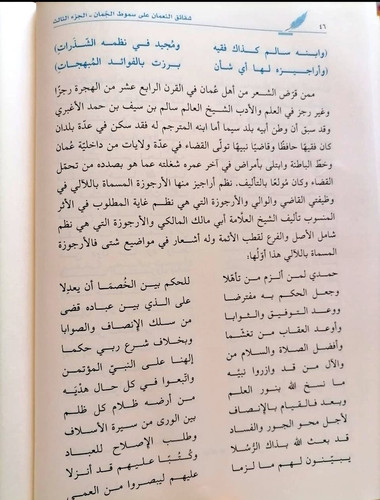 ٤٦ شقائق النعمان على سموط الجمان - الجزء الثالث
(وابنه سالم كذاك فقيه ومجيد في نظمه الشذرات)
(وأراجيزه لها أي شأن برزت بالفوائد المبهجات)
ممن قرض الشعر من أهل عُمان في القرن الرابع عشر من الهجرة رجزًا
وغير رجز في العلم والأدب الشيخ العالم سالم بن سيف بن حمد الأغبري
وقد سبق أن وطن أبيه بلد سيما أما ابنه المترجم له فقد سكن في عدّة بلدان
كان فقيهًا حافظًا وقاضيًا نبيهًا تولّى القضاء في عدّة ولايات من داخليّة عُمان
وخطّ الباطنة وابتلى بأمراض في آخر عمره شغلته عما هو بصدده من تحمّل
القضاء وكان مُولعًا بالتأليف. نظم أراجيز منها الأرجوزة المسماة باللآلي في
وظيفتي القاضي والوالي والأرجوزة التي هي نظم غاية المطلوب في الأثر
المنسوب تأليف الشيخ العلّامة أبي مالك المالكي والأرجوزة التي هي نظم
شامل الأصل والفرع لقطب الأئمة وله أشعار في مواضيع شتى فالأرجوزة
المسماة باللآلي هذا أوّلها:
حمدي لمن ألزم من تأهّلا للحكم بين الخُصمَا أن يعدِلا
وجعل الحكم به مفترضا على الذي بين عباده قضى
ووعد التوفيق والثوابا من سلك الإنصاف والصوابا
وأوعد العقاب من تغشّما وبخلاف شرع ربي حكما
وأفضل الصلاة والسلام من إلهنا على النبيّ المؤتمن
والآل من قد وازروا نبيّه واتّبعوا في كل حال هدْيَه
ما نسخ الله بنور العلم من أرضه ظلام كل ظلم
وبعد فالقيام بالإنصاف بين الورى من سيرة الأسلاف
لأجل محو الجور والفساد وطلب الإصلاح للعباد
قد بعث الله بذاك الرُّسُلا وكُتُبًا عليهم قد أنزلا
يبيّنون لهم ما لزما عليهم ليبصروا من العمى